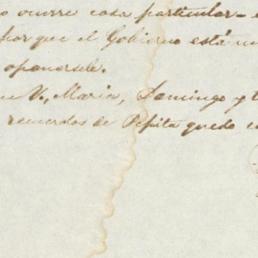 o ocurre cosa particular - e
porque el Gobierno está
oponersele.
ue V., Maria, Domingo y t
recuerdos de Pepita quedo